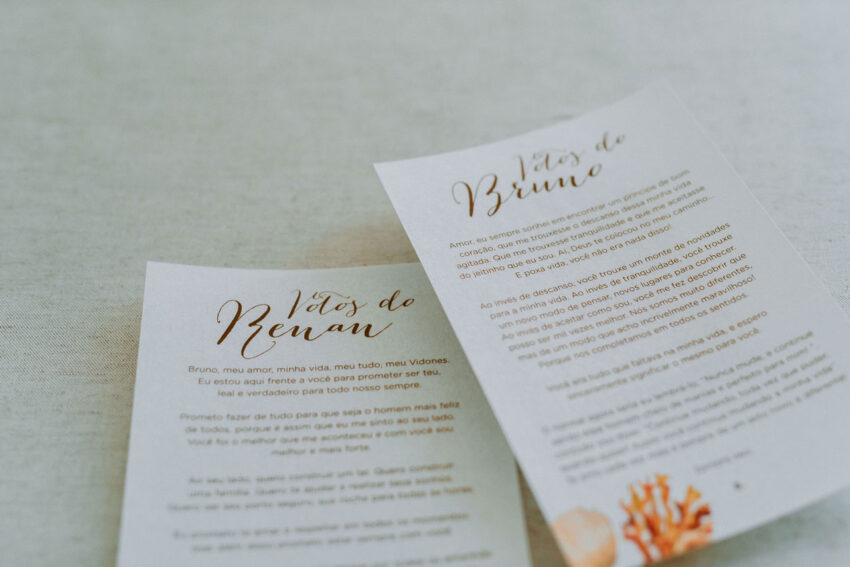 Votos do
Renan
Bruno, meu amor, minha vida, meu tudo, meu Vidones.
Eu estou aqui frente a você para prometer ser teu,
leal e verdadeiro para todo nosso sempre.
Prometo fazer de tudo para que seja o homem mais feliz
de todos, porque é assim que eu me sinto ao seu lado.
Você foi o melhor que me aconteceu e com você sou
melhor e mais forte.
Ao seu lado, quero construir um lar. Quero construir
uma família. Quero te ajudar a realizar seus sonhos.
Quero ser seu porto seguro, sua rocha para todas as horas.
Votos do
Bruno
Amor, eu sempre sonhei em encontrar um príncipe de bom
coração, que me trouxesse o descanso dessa minha vida
agitada. Que me trouxesse tranquilidade e que me aceitasse
do jeitinho que eu sou. Aí, Deus te colocou no meu caminho...
E poxa vida, você não era nada disso!
Ao invés de descanso, você trouxe um monte de novidades
para a minha vida. Ao invés de tranquilidade, você trouxe
um novo modo de pensar, novos lugares para conhecer.
Ao invés de aceitar como sou, você me fez descobrir que
posso ser mil vezes melhor. Nós somos muito diferentes,
mas de um modo que acho incrivelmente maravilhoso!
Porque nos completamos em todos os sentidos.
Você era tudo que faltava na minha vida, e espero
sinceramente significar o mesmo para você.